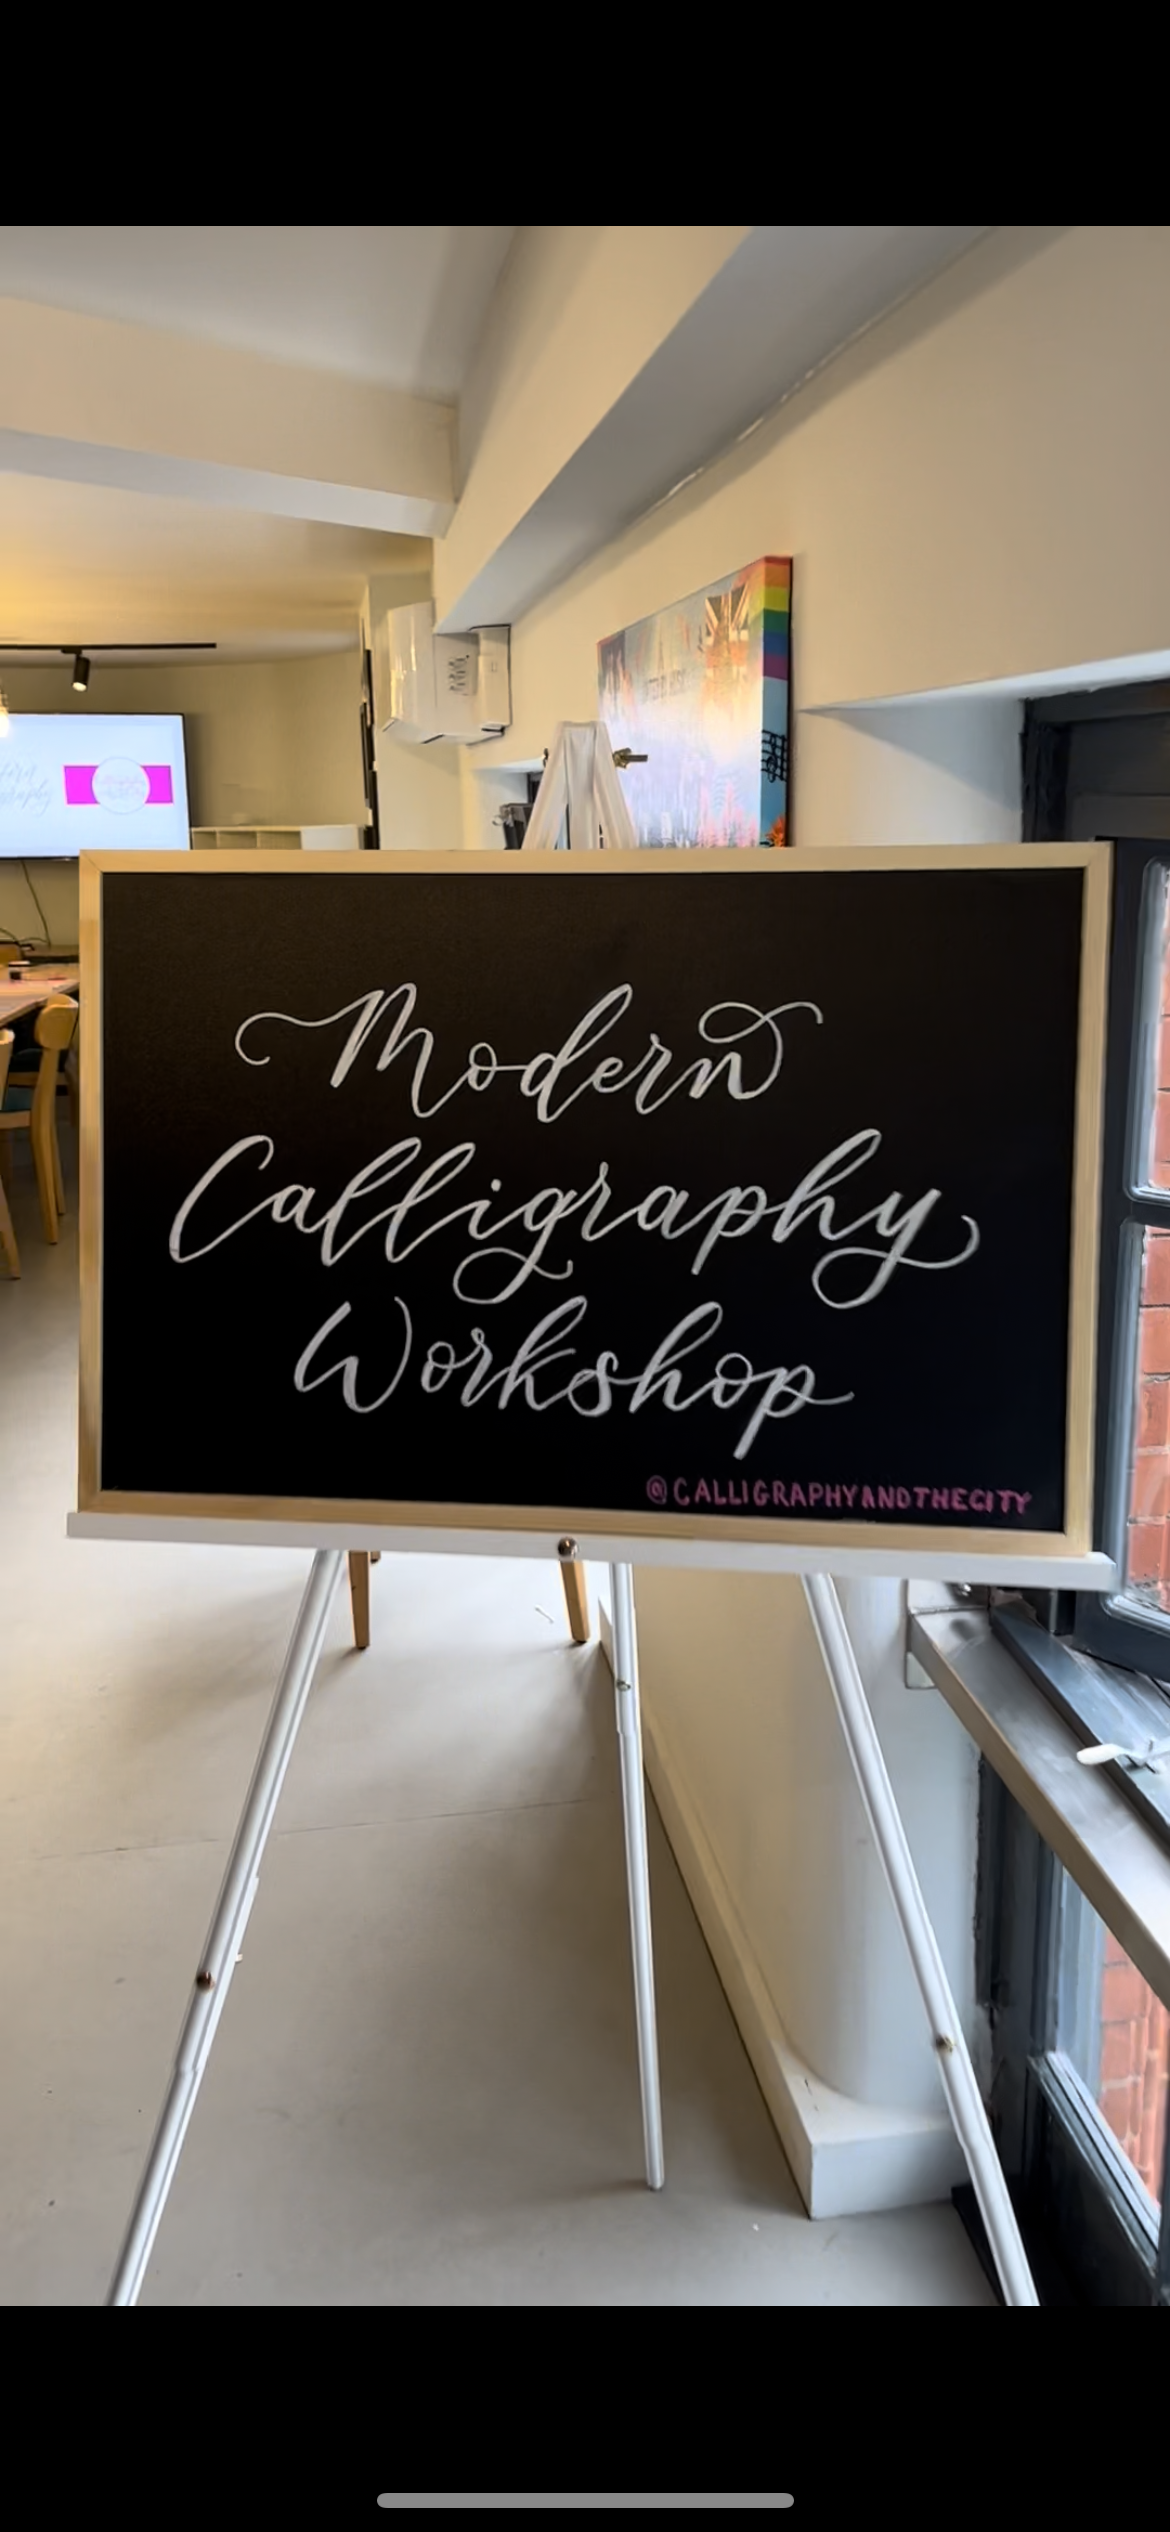 Modern
Calligraphy
Workshop
@CALLIGRAPHYANDTHECITY